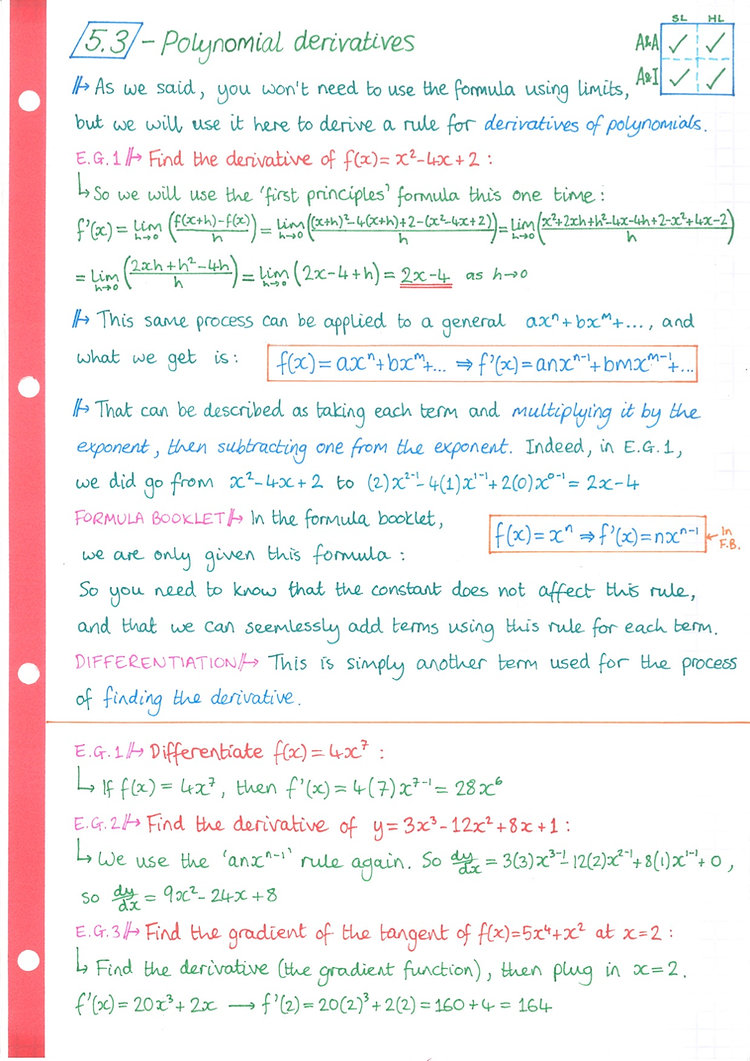 SL HL
5.3 - Polynomial derivatives
A&A ✓ ✓
A&I ✓ ✓
As we said, you won't need to use the formula using limits,
but we will use it here to derive a rule for derivatives of polynomials.
E.G.1 Find the derivative of f(x) = x²-4x+2 :
↳ So we will use the 'first principles' formula this one time :
f'(x) = lim h→0 (f(x+h)-f(x) / h) = lim h→0 ((x+h)²-4(x+h)+2-(x²-4x+2) / h) = lim h→0 (x²+2xh+h²-4x-4h+2-x²+4x-2 / h)
= lim h→0 (2xh+h²-4h / h) = lim h→0 (2x-4+h) = 2x-4 as h→0
This same process can be applied to a general axⁿ+bxᵐ+..., and
what we get is : f(x) = axⁿ+bxᵐ+... ⇒ f'(x) = anxⁿ⁻¹+bmxᵐ⁻¹+...
That can be described as taking each term and multiplying it by the
exponent, then subtracting one from the exponent. Indeed, in E.G.1,
we did go from x²-4x+2 to (2)x²⁻¹-4(1)x¹⁻¹+2(0)x⁰⁻¹ = 2x-4
FORMULA BOOKLET In the formula booklet,
we are only given this formula :
f(x) = xⁿ ⇒ f'(x) = nxⁿ⁻¹ ← In F.B.
So you need to know that the constant does not affect this rule,
and that we can seemlessly add terms using this rule for each term.
DIFFERENTIATION This is simply another term used for the process
of finding the derivative.
E.G.1 Differentiate f(x) = 4x⁷ :
↳ If f(x) = 4x⁷, then f'(x) = 4(7)x⁷⁻¹ = 28x⁶
E.G.2 Find the derivative of y = 3x³-12x²+8x+1 :
↳ We use the 'anxⁿ⁻¹' rule again. So dy/dx = 3(3)x³⁻¹-12(2)x²⁻¹+8(1)x¹⁻¹+0,
so dy/dx = 9x²-24x+8
E.G.3 Find the gradient of the tangent of f(x)=5x⁴+x² at x=2 :
↳ Find the derivative (the gradient function), then plug in x=2.
f'(x) = 20x³+2x → f'(2) = 20(2)³+2(2) = 160+4 = 164